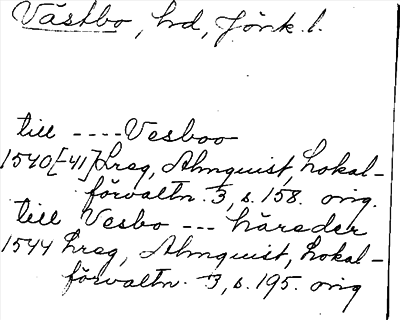 Västbo, hd, Jönk. l.
till ---- Vesboo
1540[-41] Lreg, Almquist, Lokal-
förvaltn. 3, s. 158. orig.
till Vesbo --- härader
1544 Lreg, Almquist, Lokal-
förvaltn. 3, s. 195. orig